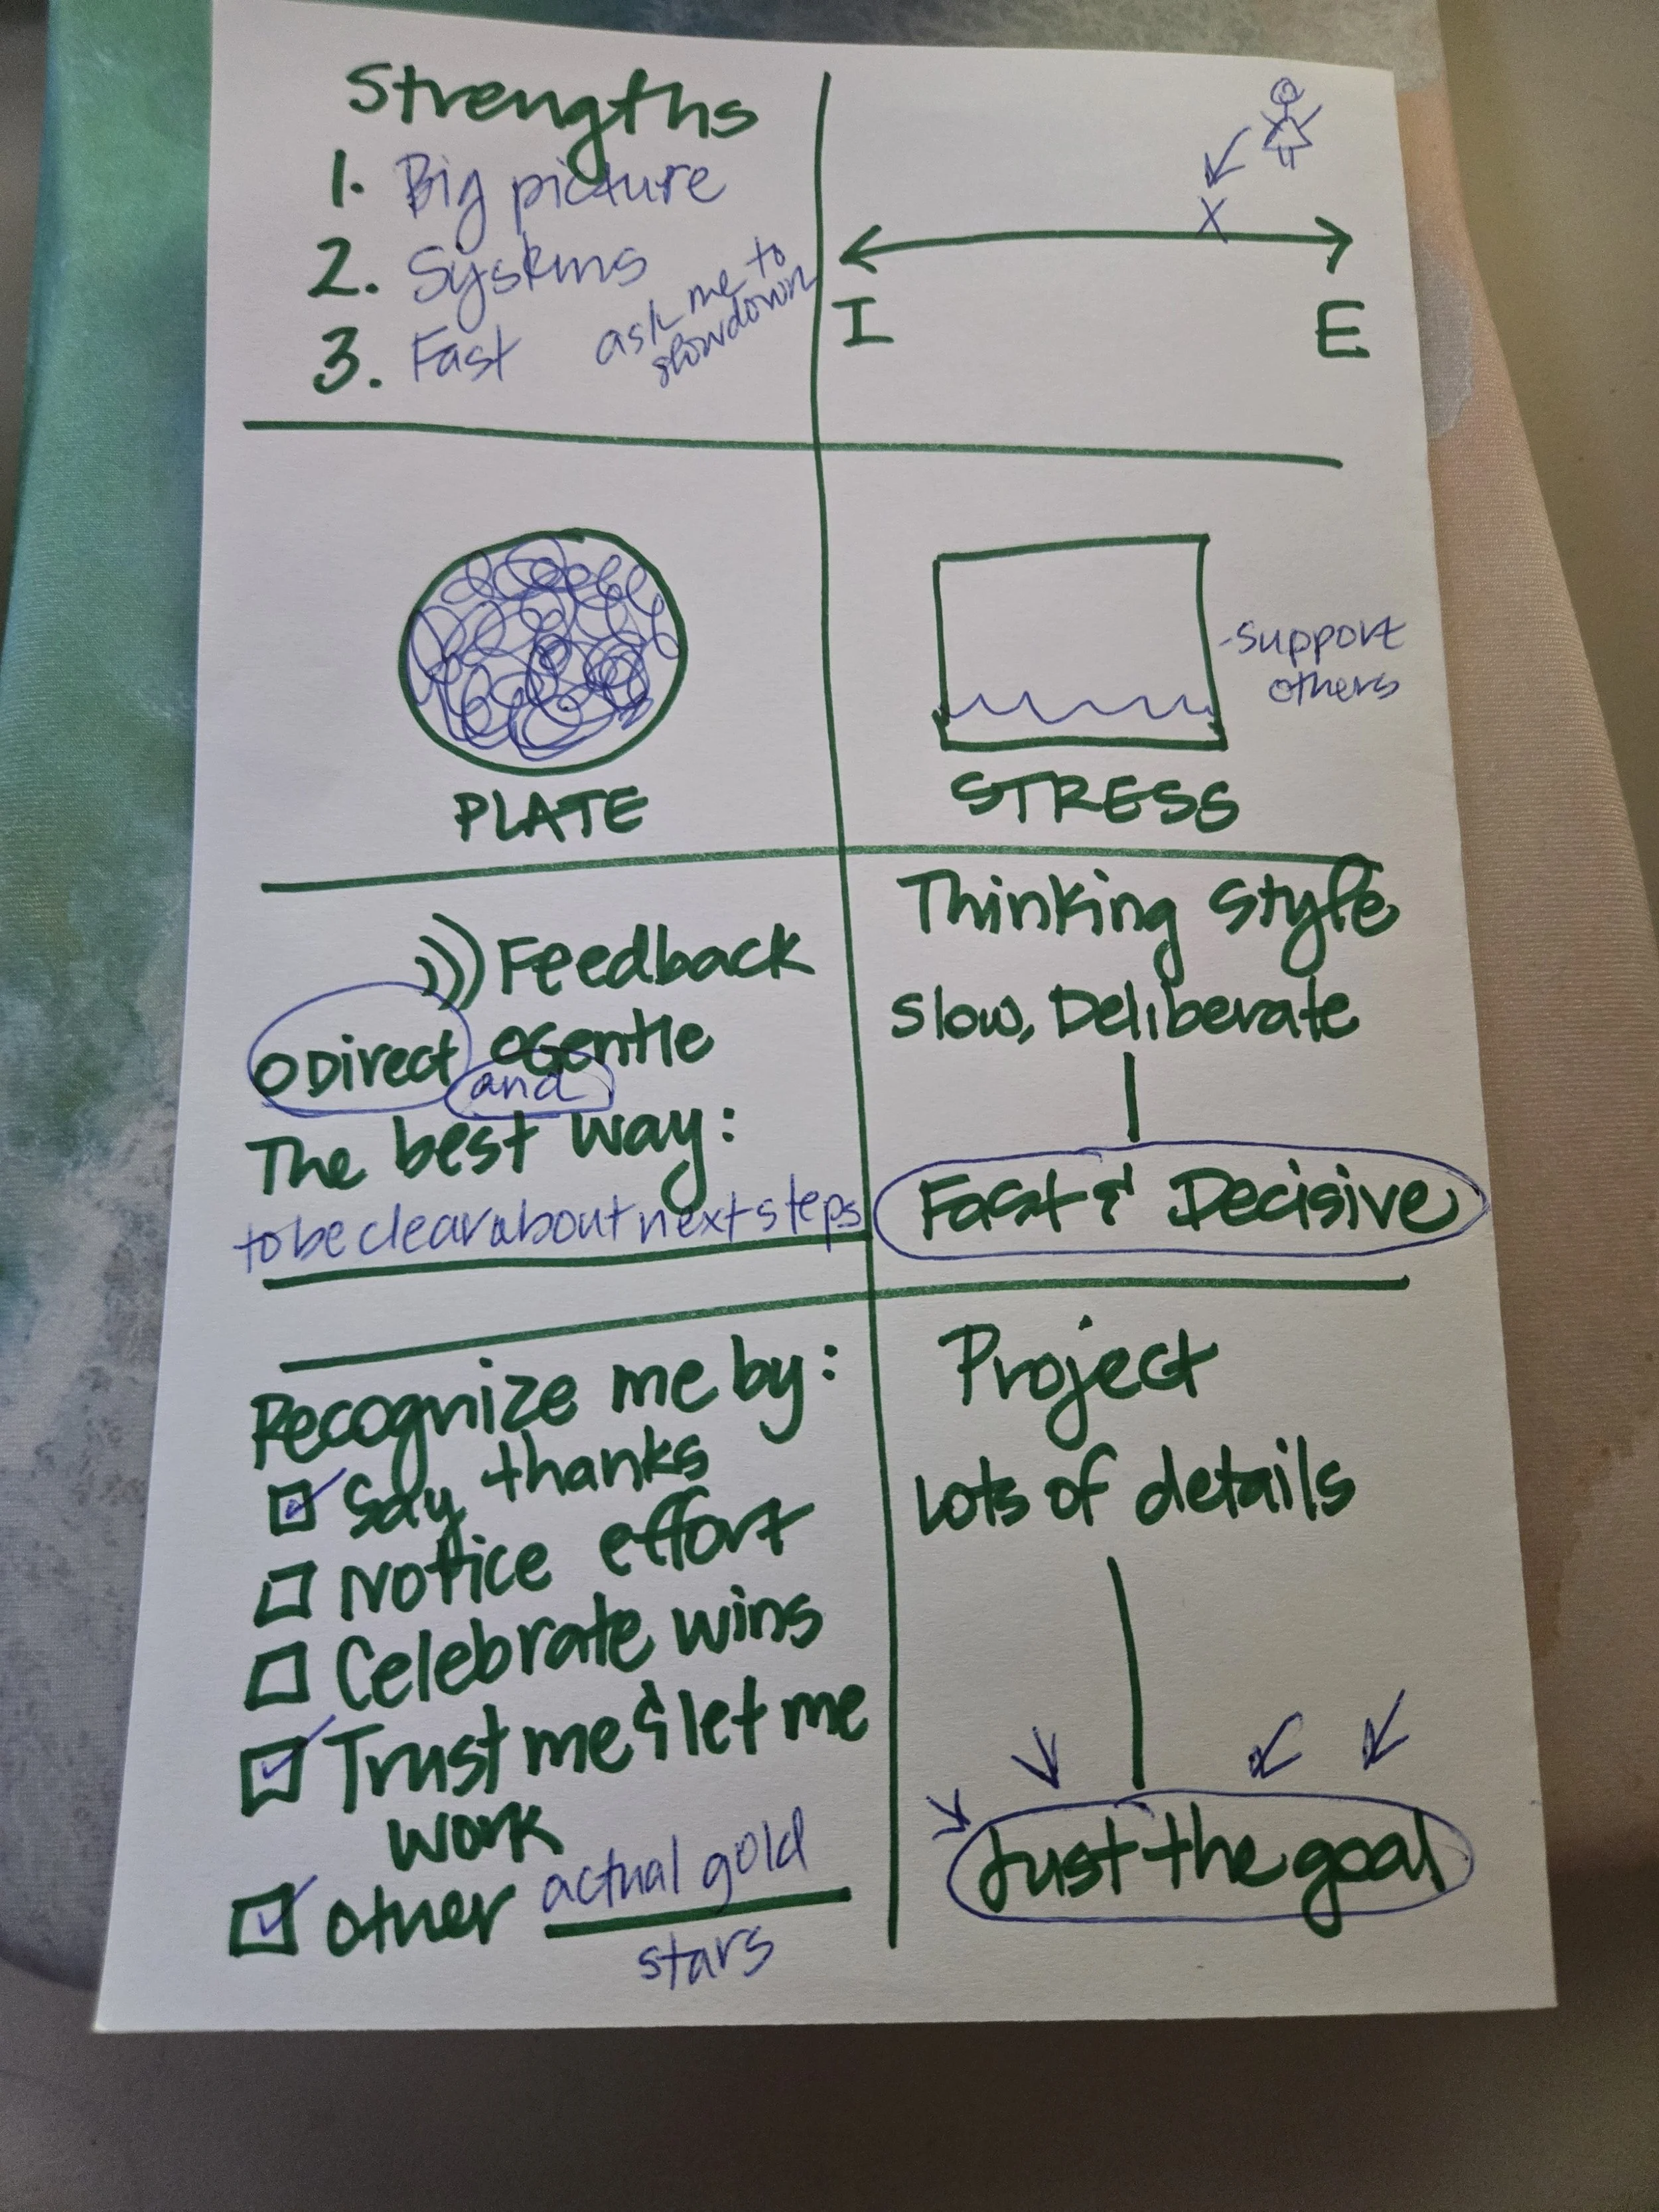 Strengths
1. Big picture
2. Systems
3. Fast
ask me to
slow down
I
E
PLATE
- Support
others
STRESS
Feedback
o Direct o Gentle
and
The best way:
to be clear about next steps
Thinking Style
Slow, Deliberate
Fast & Decisive
Recognize me by:
Say thanks
Notice effort
Celebrate wins
Trust me & let me
work
other actual gold
stars
Project
Lots of details
Just the goal